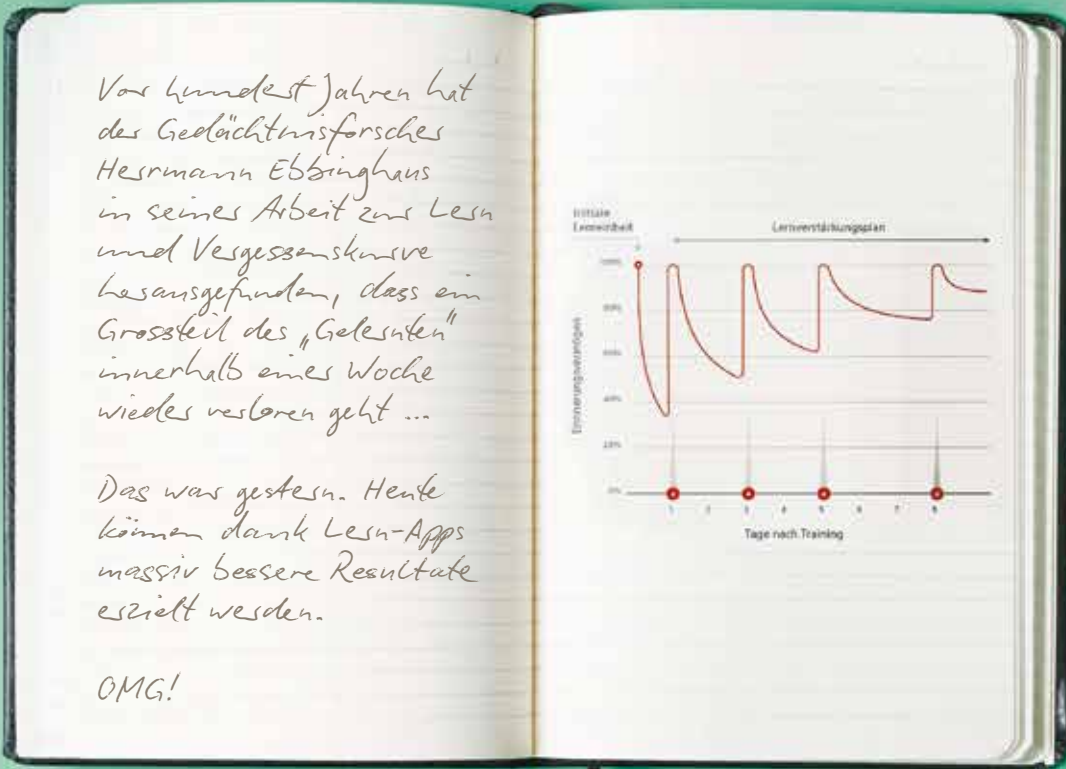 Vor hundert Jahren hat
der Gedächtnisforscher
Herrmann Ebbinghaus
in seiner Arbeit zur Lern
und Vergessenskurve
herausgefunden, dass ein
Grossteil des „Gelernten“
innerhalb einer Woche
wieder verloren geht ...
Das war gestern. Heute
können dank Lern-Apps
massiv bessere Resultate
erzielt werden.
OMG!
Initiale
Lerneinheit
Lernverstärkungsplan
Erinnerungsvermögen
100%
80%
60%
40%
20%
0%
1 2 3 4 5 6 7 8
Tage nach Training